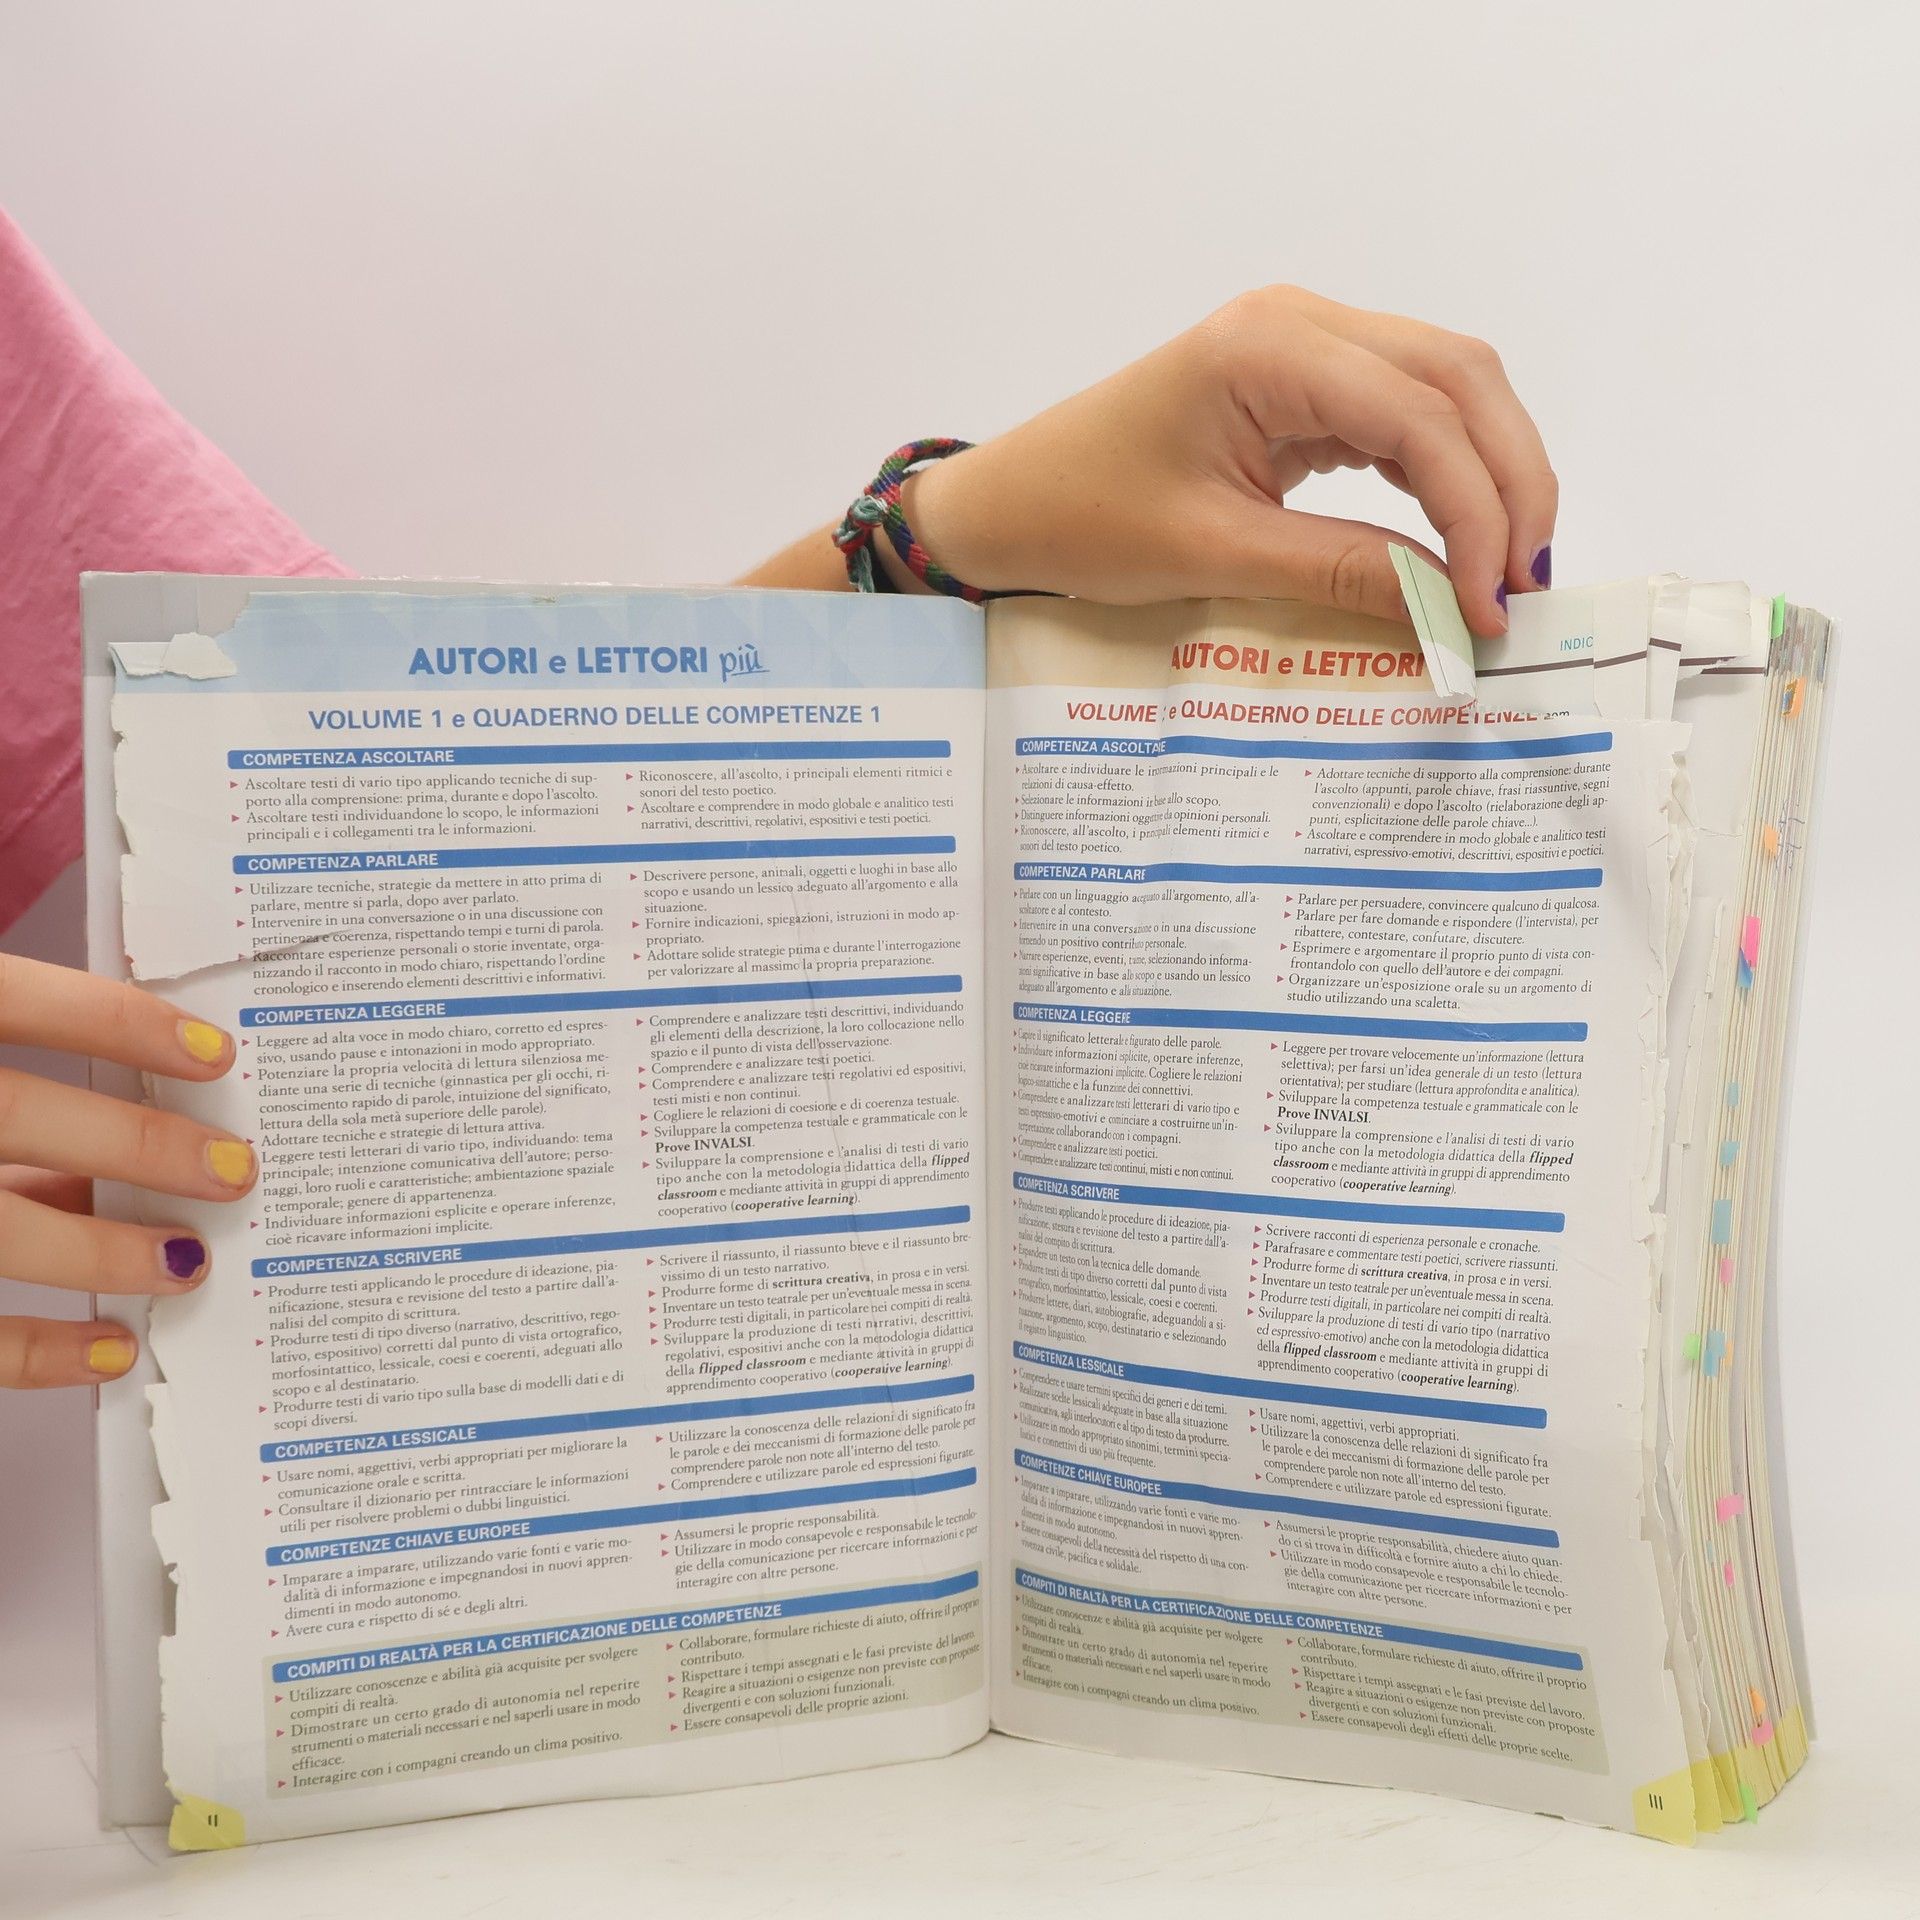 AUTORI e LETTORI più
VOLUME 1 e QUADERNO DELLE COMPETENZE 1
COMPETENZA ASCOLTARE
Ascoltare testi di vario tipo applicando tecniche di sup-
porto alla comprensione: prima, durante e dopo l'ascolto.
Ascoltare testi individuandone lo scopo, le informazioni
principali e i collegamenti tra le informazioni.
Riconoscere, all'ascolto, i principali elementi ritmici e
sonori del testo poetico.
Ascoltare e comprendere in modo globale e analitico testi
narrativi, descrittivi, regolativi, espositivi e testi poetici.
COMPETENZA PARLARE
Utilizzare tecniche, strategie da mettere in atto prima di
parlare, mentre si parla, dopo aver parlato.
Intervenire in una conversazione o in una discussione con
pertinenza e coerenza, rispettando tempi e turni di parola.
Raccontare esperienze personali o storie inventate, orga-
nizzando il racconto in modo chiaro, rispettando l'ordine
cronologico e inserendo elementi descrittivi e informativi.
Descrivere persone, animali, oggetti e luoghi in base allo
scopo e usando un lessico adeguato all'argomento e alla
situazione.
Fornire indicazioni, spiegazioni, istruzioni in modo ap-
propriato.
Adottare solide strategie prima e durante l'interrogazione
per valorizzare al massimo la propria preparazione.
COMPETENZA LEGGERE
Leggere ad alta voce in modo chiaro, corretto ed espres-
sivo, usando pause e intonazioni in modo appropriato.
Potenziare la propria velocità di lettura silenziosa me-
diante una serie di tecniche (ginnastica per gli occhi, ri-
conoscimento rapido di parole, intuizione del significato,
lettura della sola metà superiore delle parole).
Adottare tecniche e strategie di lettura attiva.
Leggere testi letterari di vario tipo, individuando: tema
principale; intenzione comunicativa dell'autore; perso-
naggi, loro ruoli e caratteristiche; ambientazione spaziale
e temporale; genere di appartenenza.
Individuare informazioni esplicite e operare inferenze,
cioè ricavare informazioni implicite.
Comprendere e analizzare testi descrittivi, individuando
gli elementi della descrizione, la loro collocazione nello
spazio e il punto di vista dell'osservazione.
Comprendere e analizzare testi poetici.
Comprendere e analizzare testi regolativi ed espositivi,
testi misti e non continui.
Cogliere le relazioni di coesione e di coerenza testuale.
Sviluppare la competenza testuale e grammaticale con le
Prove INVALSI.
Sviluppare la comprensione e l'analisi di testi di vario
tipo anche con la metodologia didattica della flipped
classroom e mediante attività in gruppi di apprendimento
cooperativo (cooperative learning).
COMPETENZA SCRIVERE
Produrre testi applicando le procedure di ideazione, pia-
nificazione, stesura e revisione del testo a partire dall'a-
nalisi del compito di scrittura.
Produrre testi di tipo diverso (narrativo, descrittivo, rego-
lativo, espositivo) corretti dal punto di vista ortografico,
morfosintattico, lessicale, coesi e coerenti, adeguati allo
scopo e al destinatario.
Produrre testi di vario tipo sulla base di modelli dati e di
scopi diversi.
Scrivere il riassunto, il riassunto breve e il riassunto bre-
vissimo di un testo narrativo.
Produrre forme di scrittura creativa, in prosa e in versi.
Inventare un testo teatrale per un'eventuale messa in scena.
Produrre testi digitali, in particolare nei compiti di realtà.
Sviluppare la produzione di testi narrativi, descrittivi,
regolativi, espositivi anche con la metodologia didattica
della flipped classroom e mediante attività in gruppi di
apprendimento cooperativo (cooperative learning).
COMPETENZA LESSICALE
Usare nomi, aggettivi, verbi appropriati per migliorare la
comunicazione orale e scritta.
Consultare il dizionario per rintracciare le informazioni
utili per risolvere problemi o dubbi linguistici.
Utilizzare la conoscenza delle relazioni di significato fra
le parole e dei meccanismi di formazione delle parole per
comprendere parole non note all'interno del testo.
Comprendere e utilizzare parole ed espressioni figurate.
COMPETENZE CHIAVE EUROPEE
Imparare a imparare, utilizzando varie fonti e varie mo-
dalità di informazione e impegnandosi in nuovi appren-
dimenti in modo autonomo.
Avere cura e rispetto di sé e degli altri.
Assumersi le proprie responsabilità.
Utilizzare in modo consapevole e responsabile le tecnolo-
gie della comunicazione per ricercare informazioni e per
interagire con altre persone.
COMPITI DI REALTÀ PER LA CERTIFICAZIONE DELLE COMPETENZE
Utilizzare conoscenze e abilità già acquisite per svolgere
compiti di realtà.
Dimostrare un certo grado di autonomia nel reperire
strumenti o materiali necessari e nel saperli usare in modo
efficace.
Interagire con i compagni creando un clima positivo.
Collaborare, formulare richieste di aiuto, offrire il proprio
contributo.
Rispettare i tempi assegnati e le fasi previste del lavoro.
Reagire a situazioni o esigenze non previste con proposte
divergenti e con soluzioni funzionali.
Essere consapevoli delle proprie azioni.
II
AUTORI e LETTORI
INDIC
VOLUME e QUADERNO DELLE COMPETENZE
COMPETENZA ASCOLTARE
Ascoltare e individuare le informazioni principali e le
relazioni di causa-effetto.
Selezionare le informazioni in base allo scopo.
Distinguere informazioni oggettive da opinioni personali.
Riconoscere, all'ascolto, i principali elementi ritmici e
sonori del testo poetico.
Adottare tecniche di supporto alla comprensione: durante
l'ascolto (appunti, parole chiave, frasi riassuntive, segni
convenzionali) e dopo l'ascolto (rielaborazione degli ap-
punti, esplicitazione delle parole chiave...).
Ascoltare e comprendere in modo globale e analitico testi
narrativi, espressivo-emotivi, descrittivi, espositivi e poetici.
COMPETENZA PARLARE
Parlare con un linguaggio adeguato all'argomento, all'a-
scoltatore e al contesto.
Intervenire in una conversazione o in una discussione
fornendo un positivo contributo personale.
Narrare esperienze, eventi, trame, selezionando informa-
zioni significative in base allo scopo e usando un lessico
adeguato all'argomento e alla situazione.
Parlare per persuadere, convincere qualcuno di qualcosa.
Parlare per fare domande e rispondere (l'intervista), per
ribattere, contestare, confutare, discutere.
Esprimere e argomentare il proprio punto di vista con-
frontandolo con quello dell'autore e dei compagni.
Organizzare un'esposizione orale su un argomento di
studio utilizzando una scaletta.
COMPETENZA LEGGERE
Capire il significato letterale e figurato delle parole.
Individuare informazioni esplicite, operare inferenze,
cioè ricavare informazioni implicite. Cogliere le relazioni
logico-sintattiche e la funzione dei connettivi.
Comprendere e analizzare testi letterari di vario tipo e
testi espressivo-emotivi e cominciare a costruirne un'in-
terpretazione collaborando con i compagni.
Comprendere e analizzare testi poetici.
Comprendere e analizzare testi continui, misti e non continui.
Leggere per trovare velocemente un'informazione (lettura
selettiva); per farsi un'idea generale di un testo (lettura
orientativa); per studiare (lettura approfondita e analitica).
Sviluppare la competenza testuale e grammaticale con le
Prove INVALSI.
Sviluppare la comprensione e l'analisi di testi di vario
tipo anche con la metodologia didattica della flipped
classroom e mediante attività in gruppi di apprendimento
cooperativo (cooperative learning).
COMPETENZA SCRIVERE
Produrre testi applicando le procedure di ideazione, pia-
nificazione, stesura e revisione del testo a partire dall'a-
nalisi del compito di scrittura.
Espandere un testo con la tecnica delle domande.
Produrre testi di tipo diverso corretti dal punto di vista
ortografico, morfosintattico, lessicale, coesi e coerenti.
Produrre lettere, diari, autobiografie, adeguandoli a si-
tuazione, argomento, scopo, destinatario e selezionando
il registro linguistico.
Scrivere racconti di esperienza personale e cronache.
Parafrasare e commentare testi poetici, scrivere riassunti.
Produrre forme di scrittura creativa, in prosa e in versi.
Inventare un testo teatrale per un'eventuale messa in scena.
Produrre testi digitali, in particolare nei compiti di realtà.
Sviluppare la produzione di testi di vario tipo (narrativo
ed espressivo-emotivo) anche con la metodologia didattica
della flipped classroom e mediante attività in gruppi di
apprendimento cooperativo (cooperative learning).
COMPETENZA LESSICALE
Comprendere e usare termini specifici dei generi e dei temi.
Realizzare scelte lessicali adeguate in base alla situazione
comunicativa, agli interlocutori e al tipo di testo da produrre.
Utilizzare in modo appropriato sinonimi, termini specia-
listici e connettivi di uso più frequente.
Usare nomi, aggettivi, verbi appropriati.
Utilizzare la conoscenza delle relazioni di significato fra
le parole e dei meccanismi di formazione delle parole per
comprendere parole non note all'interno del testo.
Comprendere e utilizzare parole ed espressioni figurate.
COMPETENZE CHIAVE EUROPEE
Imparare a imparare, utilizzando varie fonti e varie mo-
dalità di informazione e impegnandosi in nuovi appren-
dimenti in modo autonomo.
Essere consapevoli della necessità del rispetto di una con-
vivenza civile, pacifica e solidale.
Assumersi le proprie responsabilità, chiedere aiuto quan-
do ci si trova in difficoltà e fornire aiuto a chi lo chiede.
Utilizzare in modo consapevole e responsabile le tecnolo-
gie della comunicazione per ricercare informazioni e per
interagire con altre persone.
COMPITI DI REALTÀ PER LA CERTIFICAZIONE DELLE COMPETENZE
Utilizzare conoscenze e abilità già acquisite per svolgere
compiti di realtà.
Dimostrare un certo grado di autonomia nel reperire
strumenti o materiali necessari e nel saperli usare in modo
efficace.
Interagire con i compagni creando un clima positivo.
Collaborare, formulare richieste di aiuto, offrire il proprio
contributo.
Rispettare i tempi assegnati e le fasi previste del lavoro.
Reagire a situazioni o esigenze non previste con proposte
divergenti e con soluzioni funzionali.
Essere consapevoli degli effetti delle proprie scelte.
III